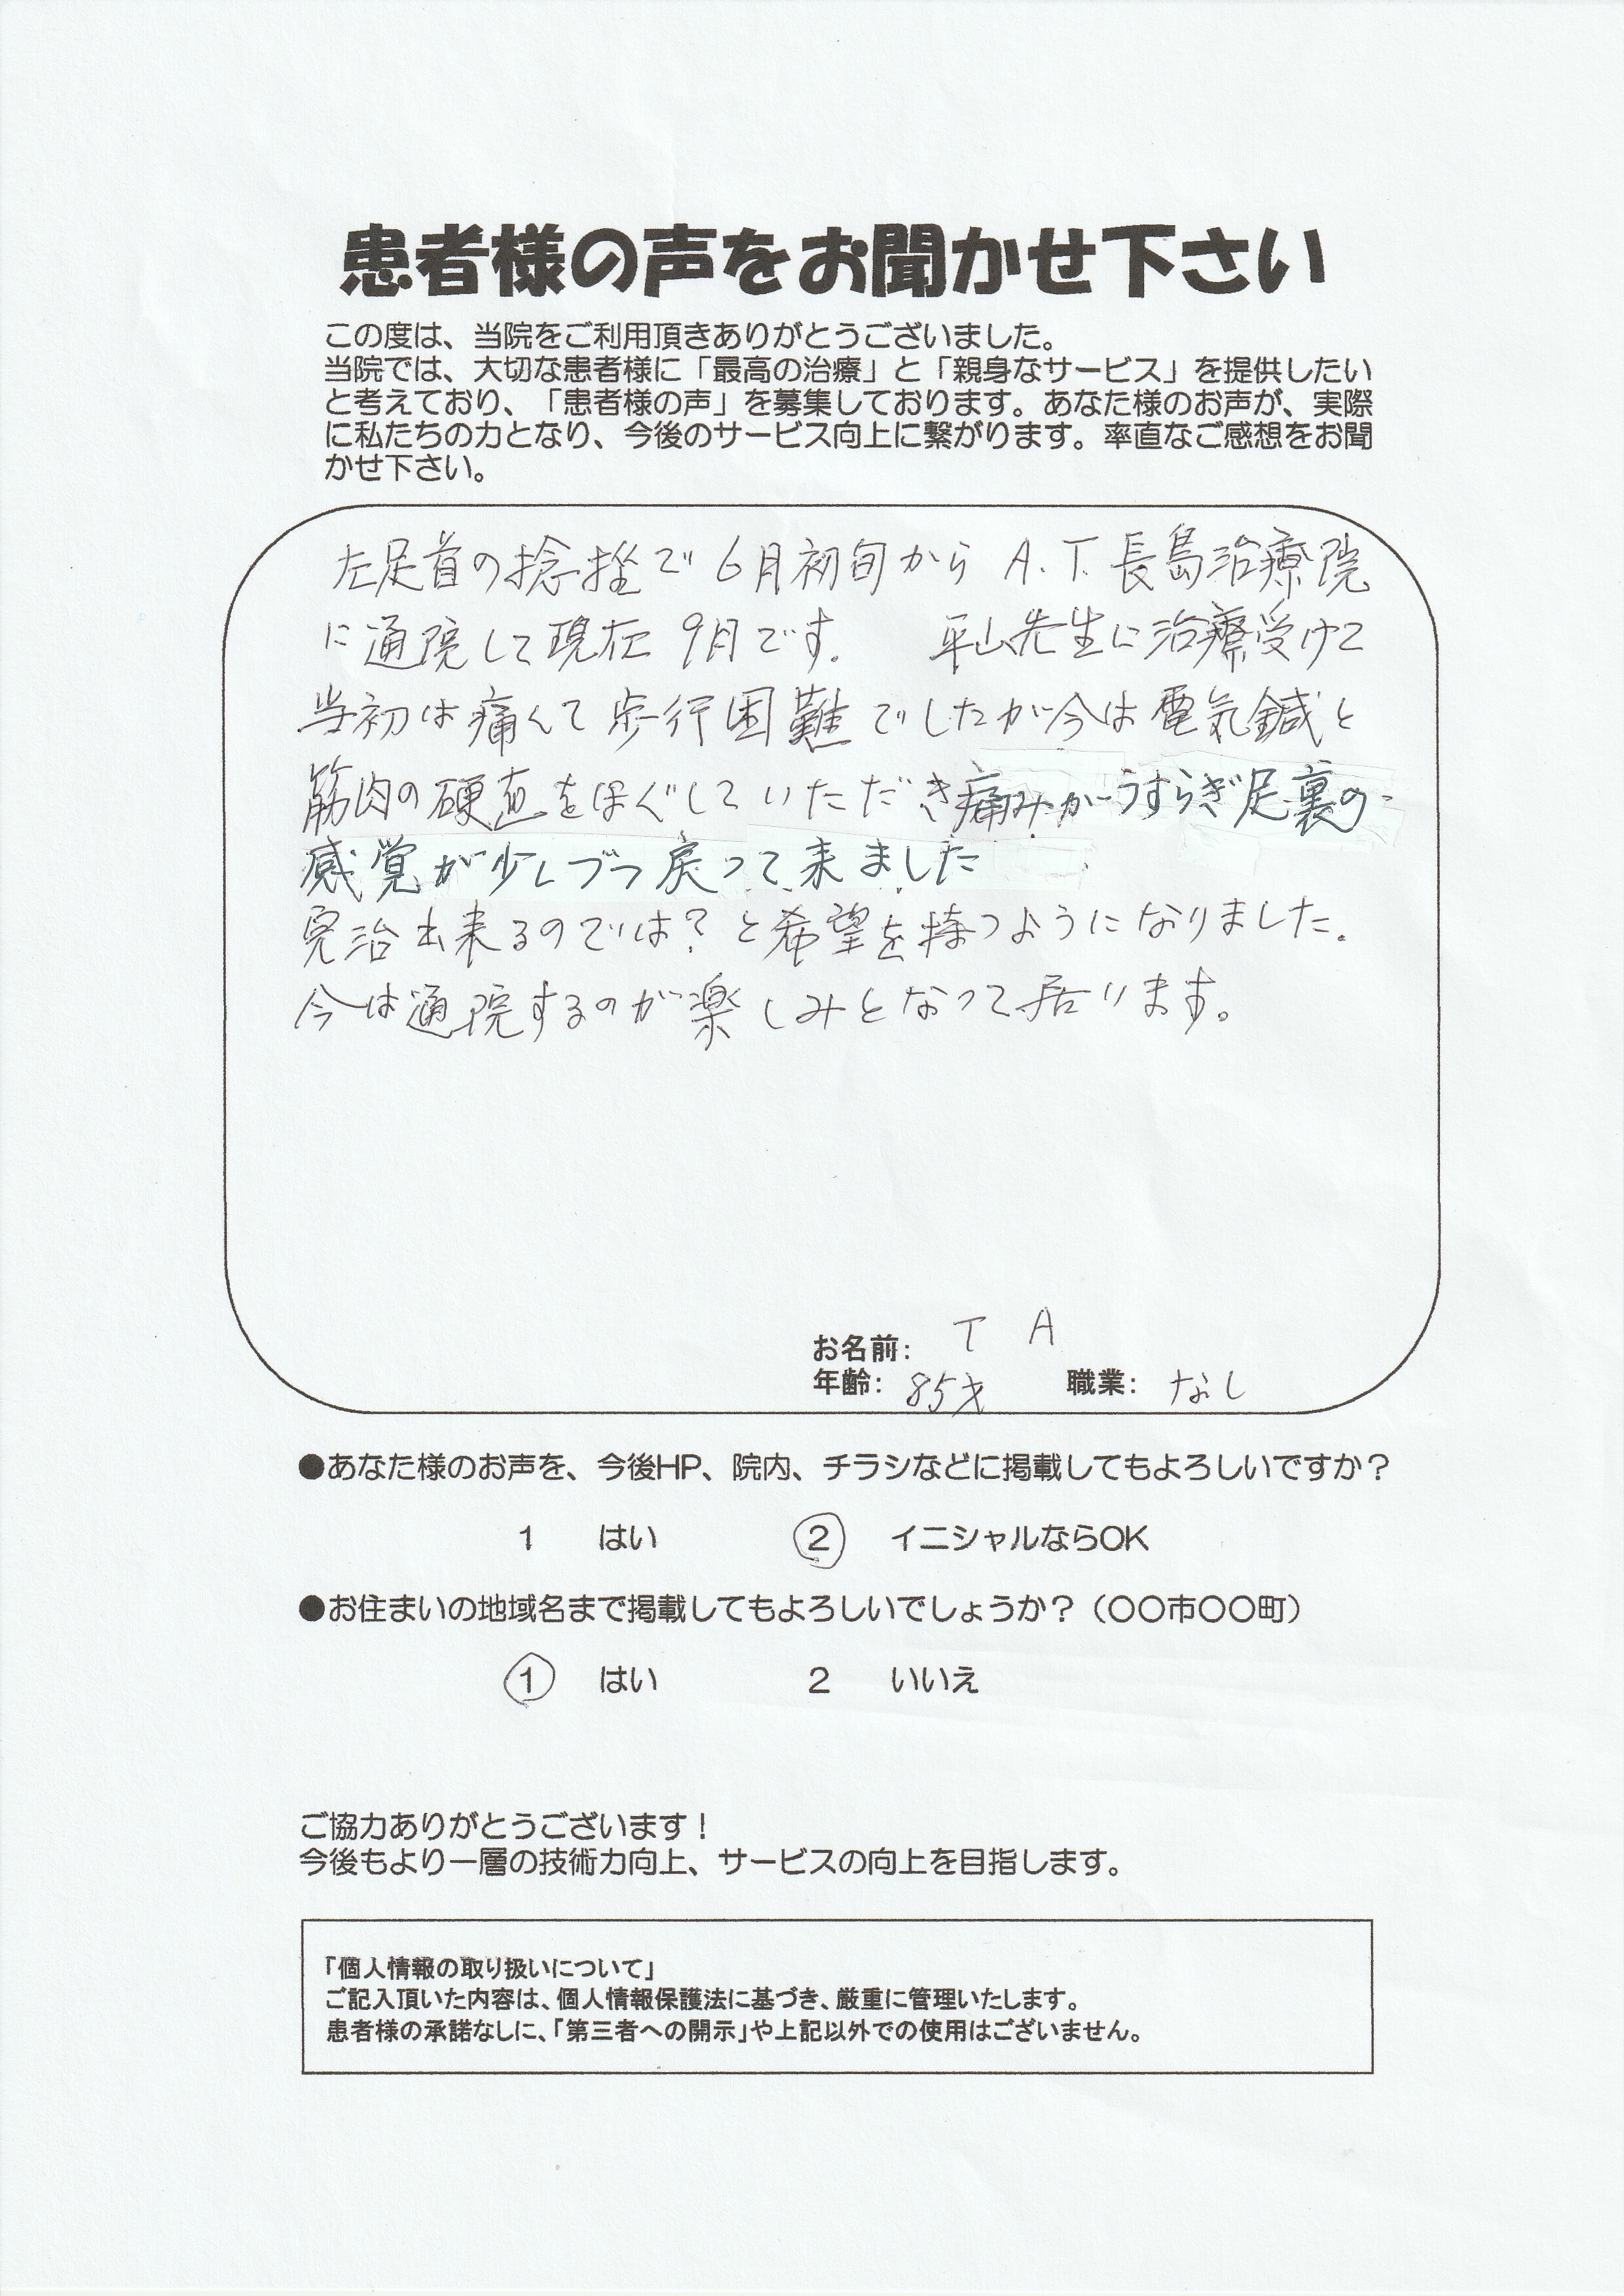 患者様の声をお聞かせ下さい
この度は、当院をご利用頂きありがとうございました。
当院では、大切な患者様に「最高の治療」と「親身なサービス」を提供したい
と考えており、「患者様の声」を募集しております。あなた様のお声が、実際
に私たちの力となり、今後のサービス向上に繋がります。率直なご感想をお聞
かせ下さい。
左足首の捻挫で6月初旬から A.T.長島治療院
に通院して現在9月です。 平山先生に治療受けて
当初は痛くて歩行困難でしたが今は電気鍼と
筋肉の硬直をほぐしていただき痛みがうすらぎ足裏の
感覚が少しづつ戻って来ました
完治出来るのでは?と希望を持つようになりました。
今は通院するのが楽しみとなって居ります。
お名前: T A
年齢: 85才 職業: なし
●あなた様のお声を、今後HP、院内、チラシなどに掲載してもよろしいですか?
1 はい 2 イニシャルならOK
●お住まいの地域名まで掲載してもよろしいでしょうか?(〇〇市〇〇町)
1 はい 2 いいえ
ご協力ありがとうございます!
今後もより一層の技術力向上、サービスの向上を目指します。
「個人情報の取り扱いについて」
ご記入頂いた内容は、個人情報保護法に基づき、厳重に管理いたします。
患者様の承諾なしに、「第三者への開示」や上記以外での使用はございません。